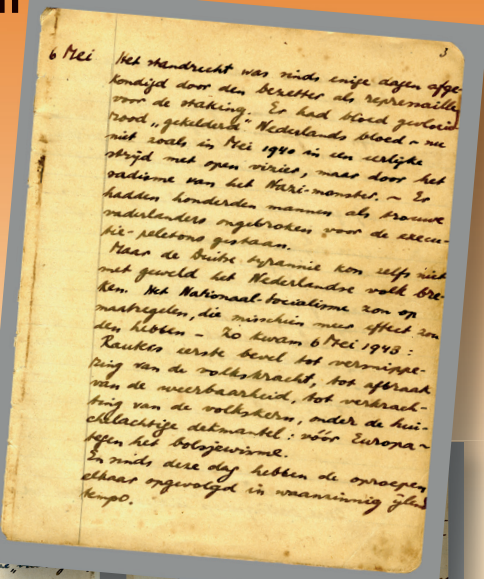 3
6 Mei Het standrecht was sinds enige dagen afge-
kondigd door den bezetter als represaille
voor de staking. Er had bloed gevloeid
rood „gekelderd" Nederlands bloed – nu
niet zoals in Mei 1940 in een eerlijke
strijd met open vizier, maar door het
sadisme van het Nazi-monster. ~ Er
hadden honderden mannen als trouwe
vaderlanders ongebroken voor de execu-
tie-peletons gestaan.
Maar de Duitse tyrannie kon zelfs niet
met geweld het Nederlandse volk bre-
ken. Het Nationaal-Socialisme zon op
maatregelen, die misschien meer effect zou
den hebben – Zo kwam 6 Mei 1943:
Rauters eerste bevel tot versnippe-
ring van de volkskracht, tot afbraak
van de weerbaarheid, tot verkrach-
ting van de volkskern, onder de hui-
chelachtige dekmantel: vóór Europa ~
tegen het bolsjewisme.
En sinds deze dag hebben de oproepen
elkaar opgevolgd in waanzinnig ijlend
tempo.